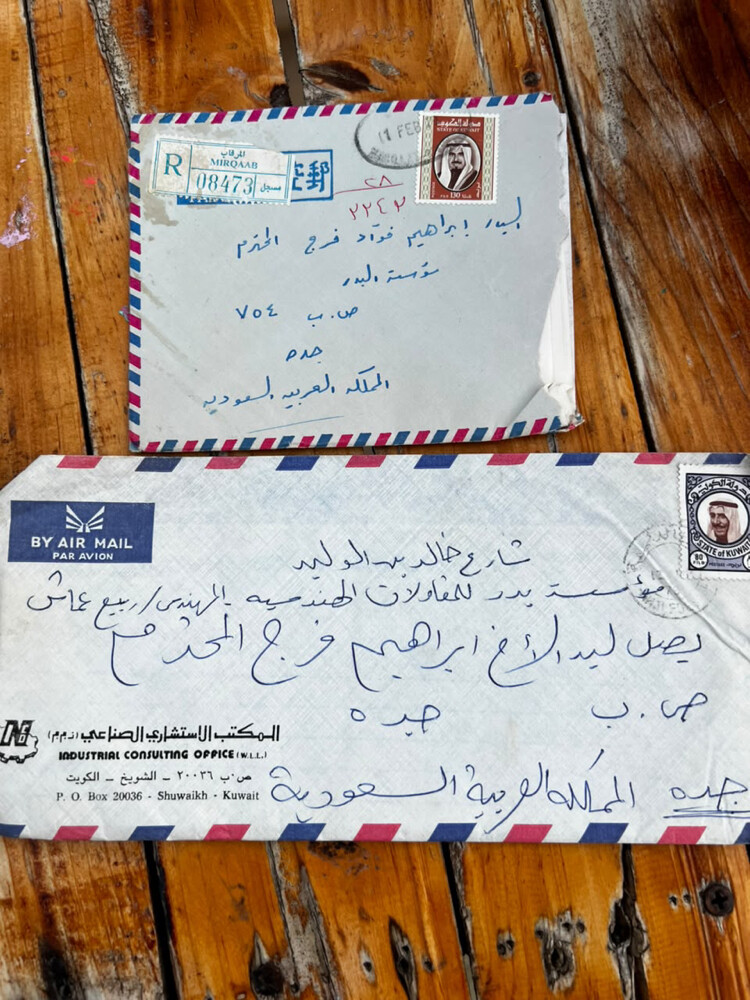 11 FEB
دولة الكويت
STATE OF KUWAIT
130
R
المرقاب
MIRQAAB
08473
مسجل
空郵
٢٨
٢٢٤٢
السيد ابراهيم فؤاد فرج المحترم
مؤسسة البدر
ص. ب ٧٥٤
جده
المملكه العربيه السعوديه
BY AIR MAIL
PAR AVION
دولة الكويت
STATE of KUWAIT
80
شارع خالد بن الوليد
مؤسسة بدر للمقاولات الهندسيه - المهندس / ربيع عماش
يصل ليد الأخ ابراهيم فرج المحترم
ص. ب جده
جده المملكه العربية السعودية
المكتب الاستشاري الصناعي (ذ.م.م)
INDUSTRIAL CONSULTING OFFICE (W.L.L.)
ص.ب ٢٠٠٣٦ - الشويخ - الكويت
P. O. Box 20036 - Shuwaikh - Kuwait